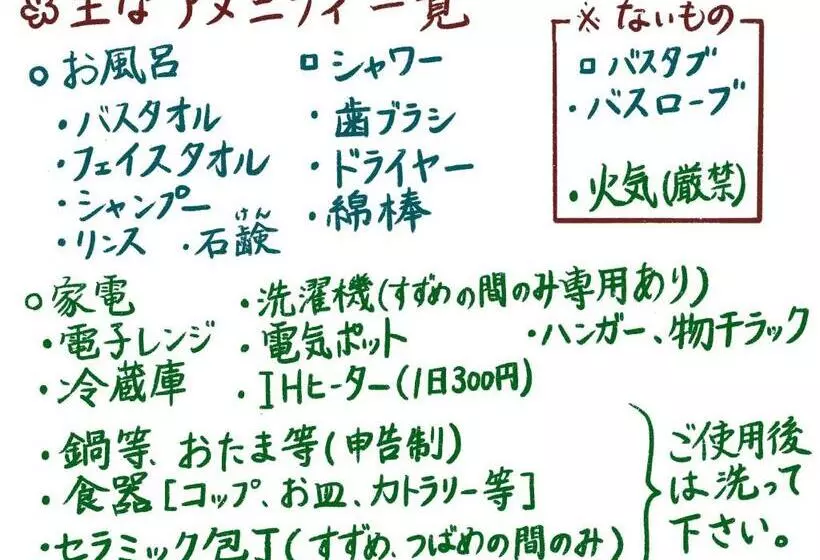 主なアメニティ一覧
※ないもの
ロバスタブ
・バスローブ
・火気(厳禁)
○お風呂
ロシャワー
・バスタオル
・歯ブラシ
・フェイスタオル
・ドライヤー
・シャンプー
・綿棒
・リンス ・石鹸
けん
○家電
・洗濯機(すずめの間のみ専用あり)
・電子レンジ ・電気ポット ・ハンガー、物干ラック
・冷蔵庫 ・IHヒーター(1日300円)
・鍋等、おたま等(申告制)
・食器[コップ、お皿、カトラリー等]
・セラミック包丁(すずめ、つばめの間のみ)
ご使用後
は洗って
下さい。